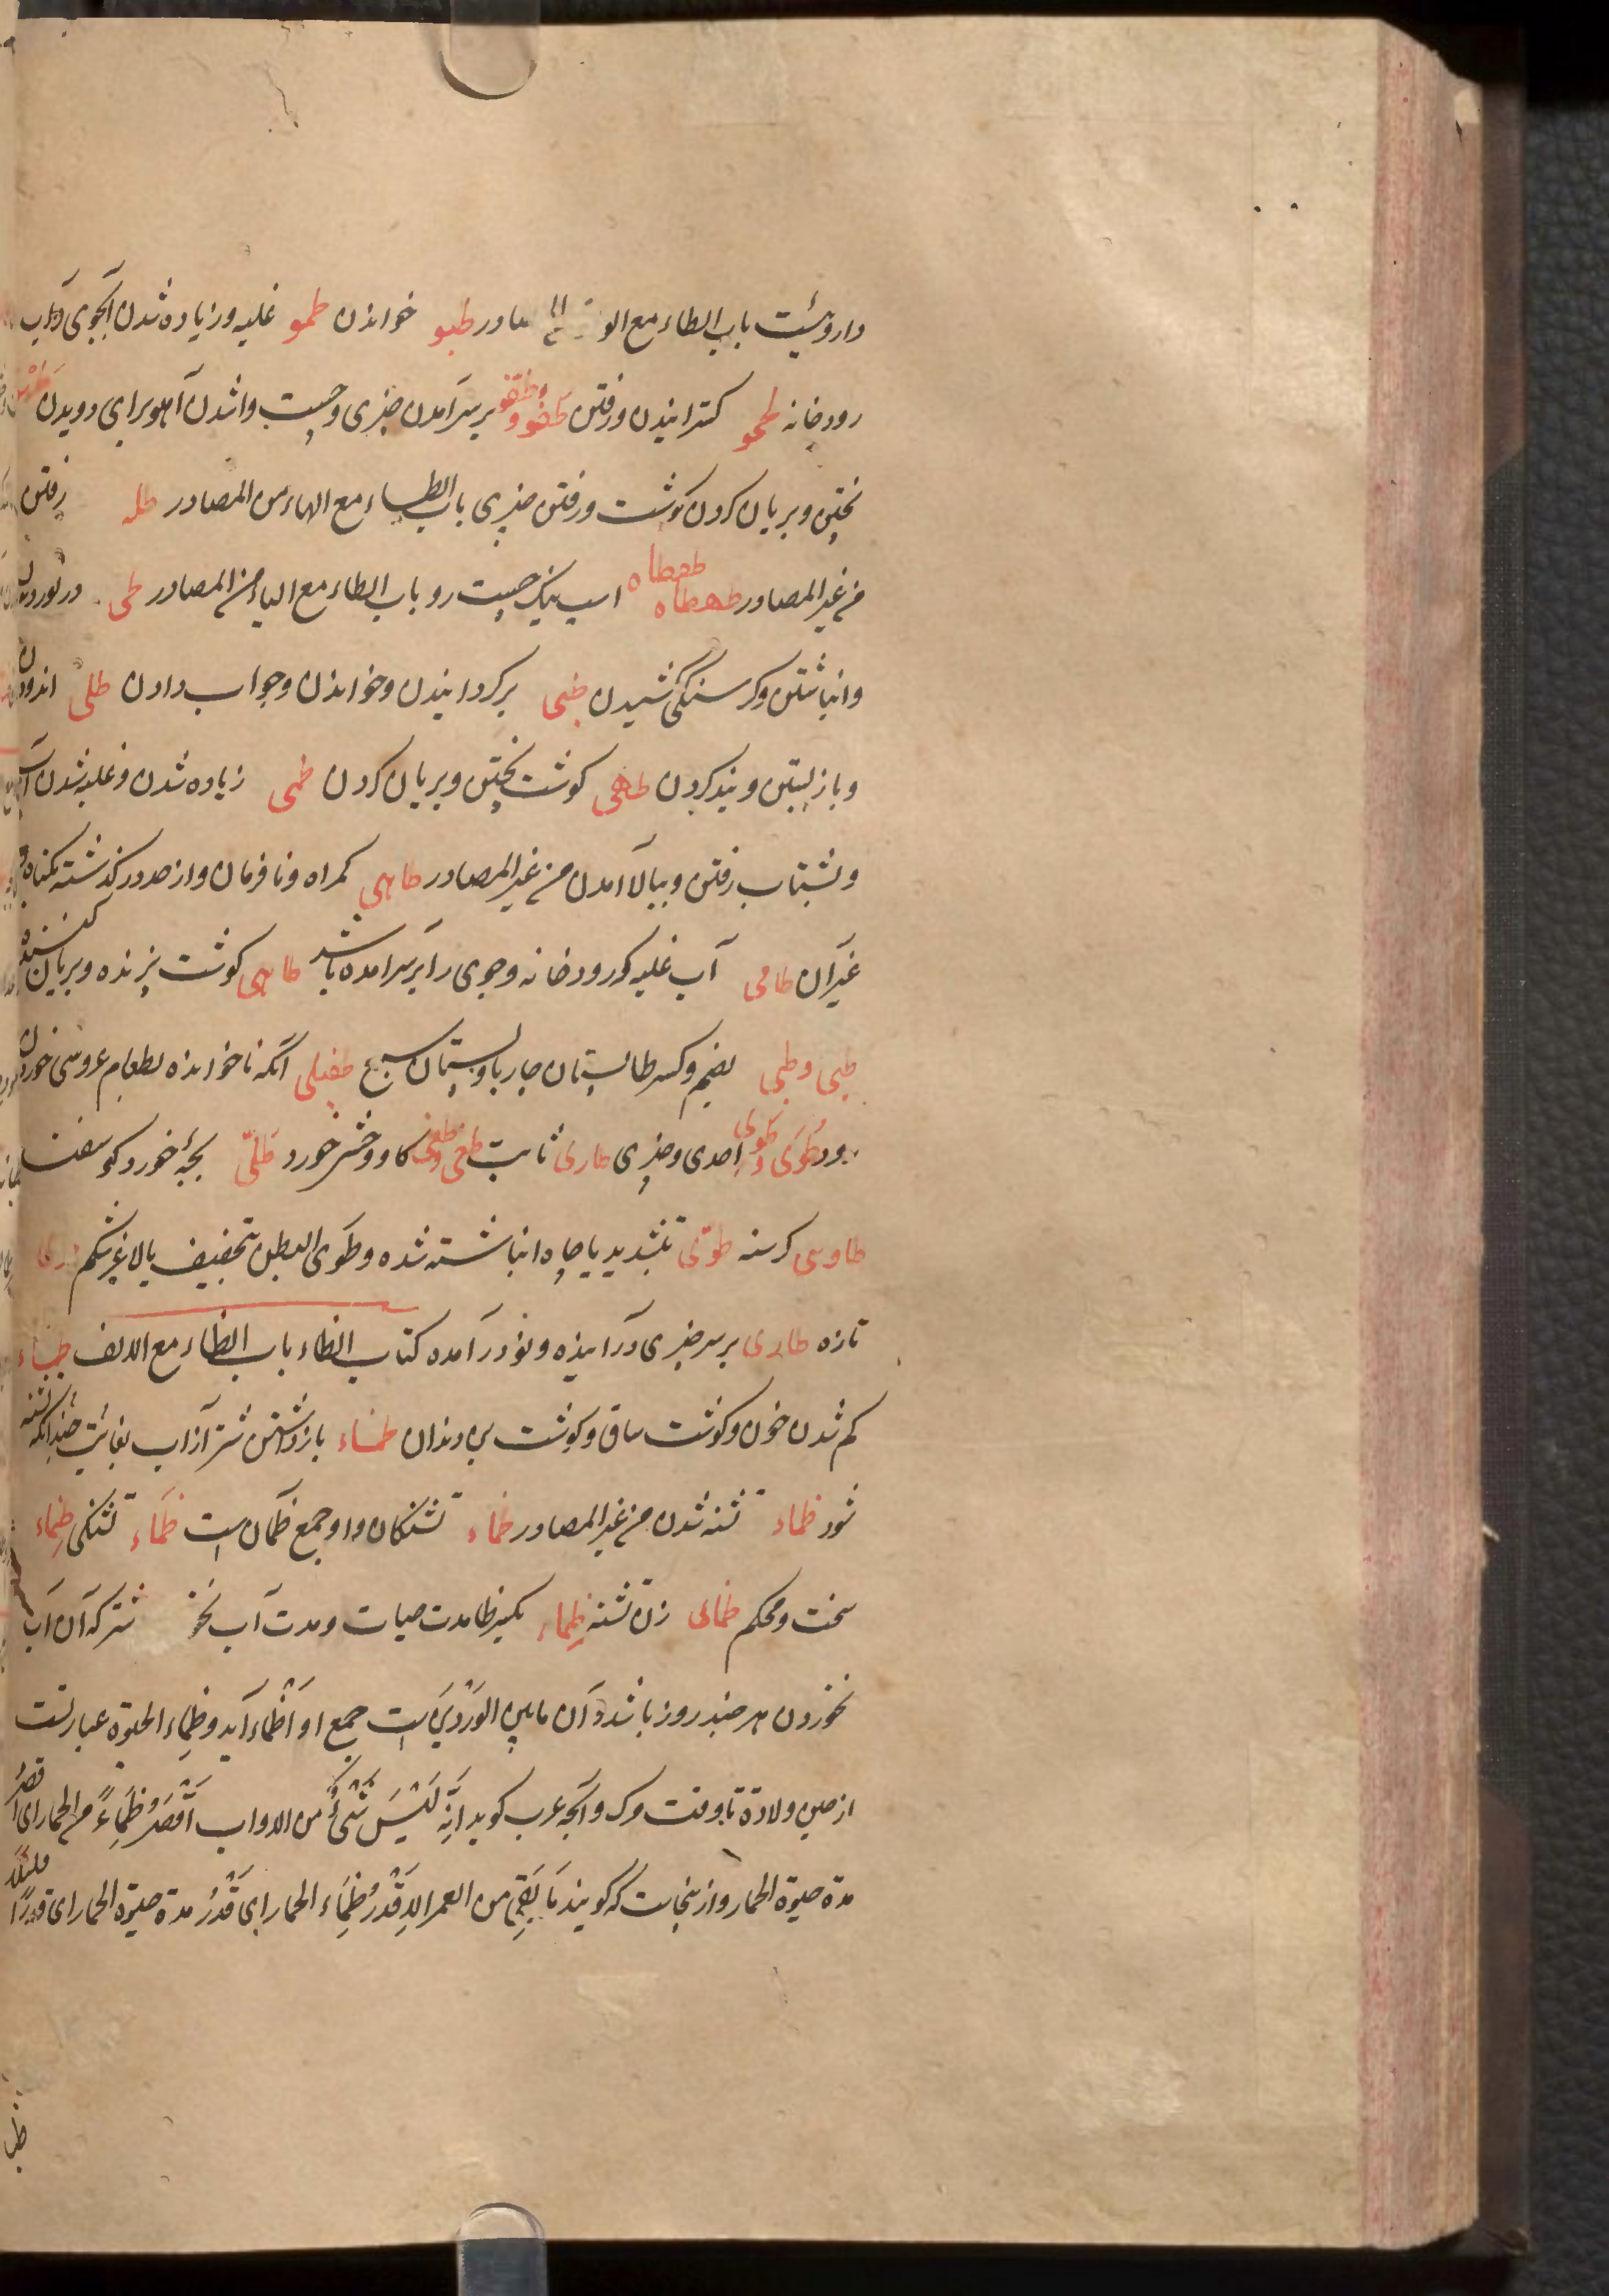 داروئیست باب الطاء مع الو المصادر طبو خواندن طمو غلبه و زیاده شدن آبجوی و آب
رودخانه طحو کسترانیدن و رفتن طفو و طفو بر سر آمدن چیزی و چست واشدن آهو برای دویدن
پختن و بریان کردن کوشت و رفتن چیزی باب الطاء مع الهاء من المصادر طله رفتن
من غیر المصادر طهطاه طهطاه اسپ نیک چست رو باب الطاء مع الیاء من المصادر طی در نوردیدن
و انباشتن و کرسنکی کشیدن طبی برکردانیدن و خواندن و جواب دادن طلی اندودن
و باز بستن و بند کردن طهی کوشت پختن و بریان کردن طمی زیاده شدن و غلبه شدن آب
و بشتاب رفتن و ببالا آمدن من غیر المصادر طاهی کمراه و نافرمان و از حد در کذشته بکناه و
غیر آن طامی آب غلبه که رودخانه و جوی را بر سر آمده باشد طاهی کوشت پزنده و بریان کننده
طبی و طبی بضم و کسر طا پستان چارپا و پستان سبع طفیلی آنکه ناخوانده بطعام عروسی خوردن
رود طُوئی و طوئی احدی و چیزی طاری ثابت طغی و طغی کاو وحشی خورد طَلّی بچهٔ خورد کوسفند
طاوی کرسنه طویّ بتشدید یا چاه انباشته شده و طَوی البطن بتخفیف یا لاغر شکم طری
تازه طاری بر سر چیزی درآینده و نو درآمده کتاب الظاء باب الظاء مع الالف ظباء
کم شدن خون و کوشت ساق و کوشت بن دندان ظماء بازداشتن شتر از آب بغایت چندانکه تشنه
شود ظماء تشنه شدن من غیر المصادر ظماء تشنکان و او جمع ظمآن است ظَماء تشنکی ظِماء
سخت و محکم ظمای زن تشنه ظِماء بکسر ظا مدت حیات و مدت آب نخو شتر که آن آب
نخوردن هر چند روز باشد و آن ما بین الوَرْدَین است جمع او اَظْماء آید و ظِماء الحیوة عبارتست
از حین ولادة تا وقت مرک و آنچه عرب کوید اِنَّه لَیْسَ شَیْءٌ من الدواب اَقْصَرُ ظِمَاءً من الحمار ای اَقْصَرُ
مدة حیوة الحمار و از ینجاست که کویند مَا بَقِیَ من العمر الا قَدْرُ ظِمَاء الحمار ای قَدْرُ مدة حیوة الحمار ای قَدْرًا قلیلًا